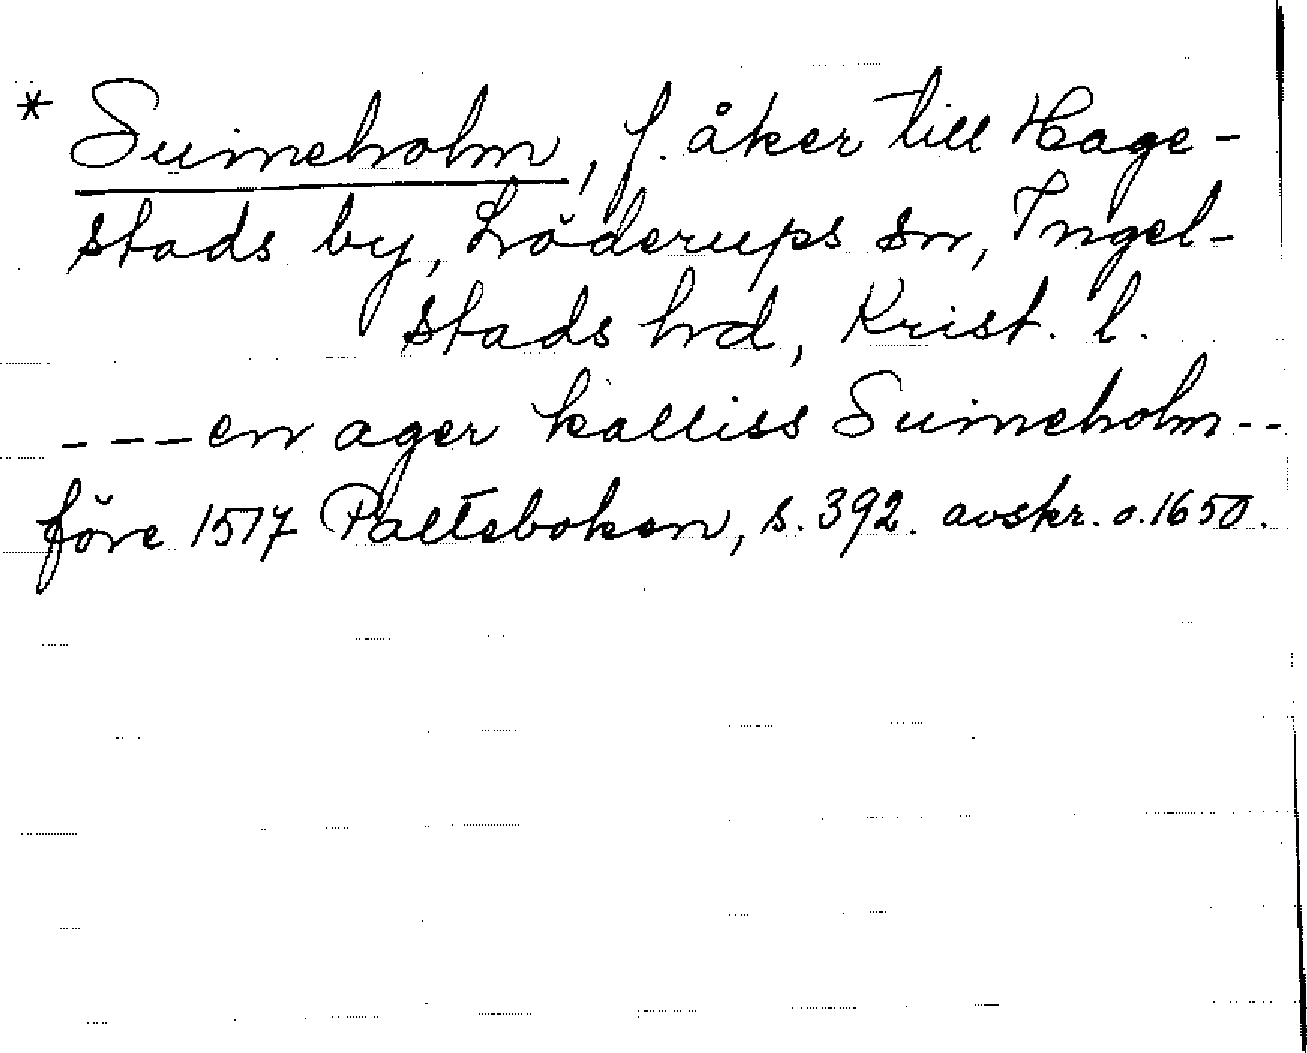 * Suineholm, f. åker till Hage-
stads by, Löderups sn, Ingel-
stads hd, Krist. l.
---en ager kalliss Suineholm--
före 1517 Palteboken, s. 392. avskr. o. 1650.